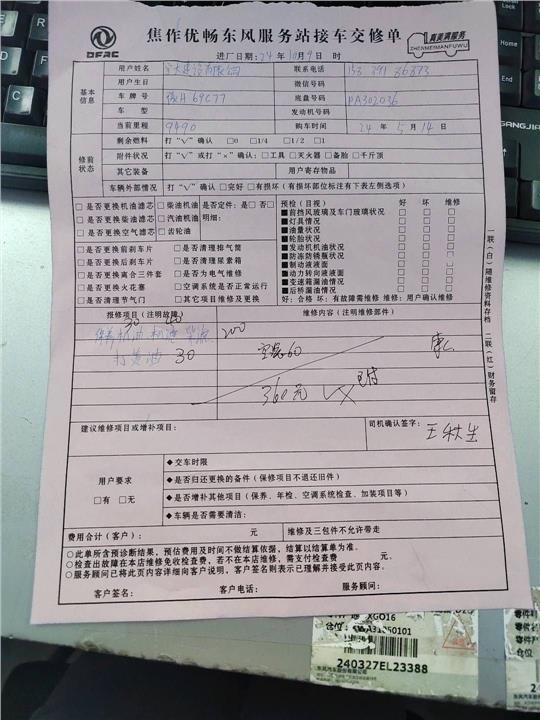 DFAC
焦作优畅东风服务站接车交修单
真美满服务
ZHENMEIMANFUWU
进厂日期：24年10月9日 时
基本信息
用户姓名
建设有限公司
联系电话
用户生日
微信号码
车牌号
69C77
底盘号码
PA302036
车型
发动机号码
当前里程
9490
购车时间
24年5月14日
修前状态
剩余燃料
打“√”确认 □0 □1/4 □1/2 □1
附件状况
打“√”或打“×”确认：□工具 □灭火器 □备胎 □千斤顶
其它装备
用户寄存物品
车辆外部情况
打“√”确认 □完好 □有损坏（有损坏部位标注有下表左侧选项）
□是否更换机油滤芯 □柴油机油 是否定件：是□ 否□
□是否更换柴油滤芯 □汽油机油 明细：
□是否更换空气滤芯 □齿轮油
□是否更换前刹车片 □是否清理排气筒
□是否更换后刹车片 □是否清理尿素箱
□是否更换离合三件套 □是否为电气维修
□是否更换火花塞 □空调系统是否正常运行
□是否清理节气门 □其它项目维修及更换
预检（目视） 好 坏 维修
■前挡风玻璃及车门玻璃状况 □ □ □
■灯具情况 □ □ □
■油量状况 □ □ □
■轮胎状况 □ □ □
■发动机机油状况 □ □ □
■防冻防锈瓶状况 □ □ □
■制动液液面 □ □ □
■动力转向液液面 □ □ □
■变速箱漏油情况 □ □ □
■后桥漏油情况 □ □ □
好：合格 坏：有故障需维修 维修：用户确认维修
报修项目（注明故障）
维修内容（注明维修部件）
30 40
保养机油 机滤 柴滤 200
打黄油 30
空滤60
康
360元
已付
建议维修项目或增补项目：
司机确认签字：
王秋生
用户要求
□有 □无
◆交车时限
◆是否归还更换的备件（保修项目不退还旧件）
◆是否增补其他项目（保养、年检、空调系统检查、加装项目等）
◆车辆是否需要清洁：
费用合计（客户）： 元
维修及三包件不允许带走
○此单所含预诊断结果，预估费用及时间不做结算依据，结算以结算单为准。
○检查出故障在本店维修免收检查费，若不在本店维修，需支付检查费 元。
○服务顾问已将此页内容详细向客户说明，客户签名则表示已理解并接受此页内容。
客户签名： 客户电话： 服务顾问：
一联（白）随维修资料存档
二联（红）财务留存
XGO16
仓位：
240327EL23388
东风汽车股份有限公司
仓位